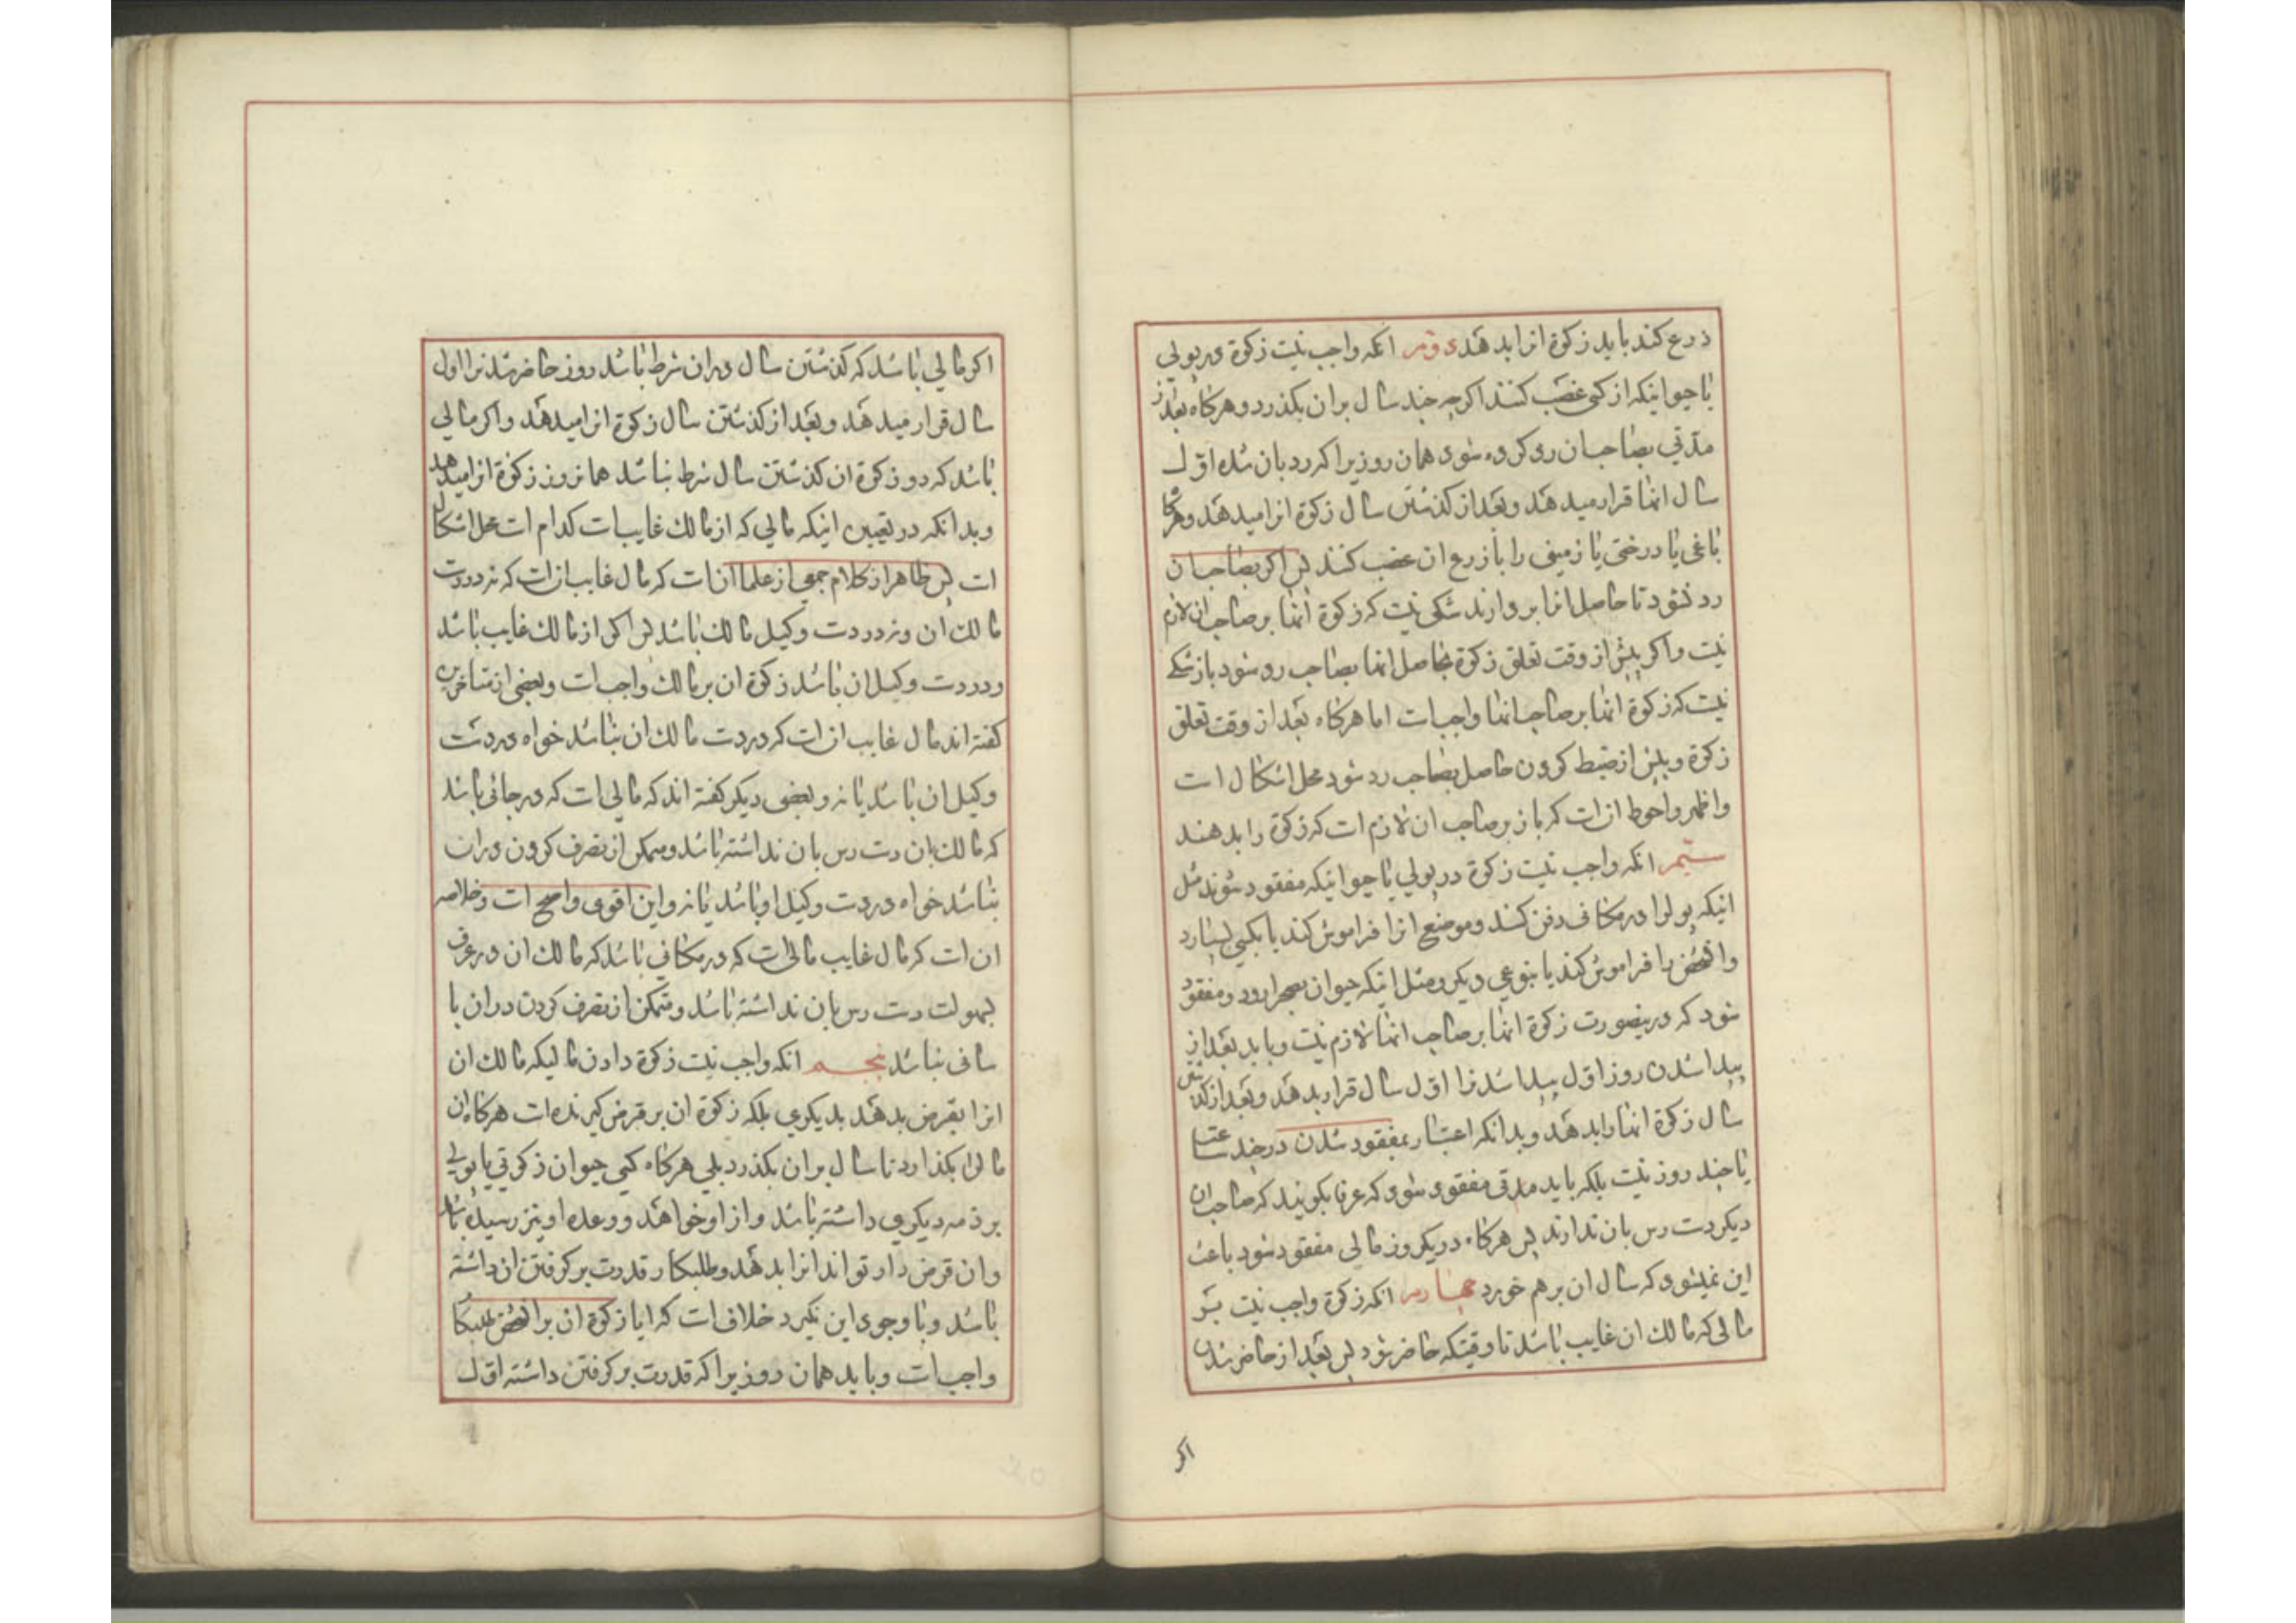 ذرع کند باید زکوة انرا بدهد دوم انکه واجب نیست زکوة در پولی
یا حیوانیکه از کسی غصب کنند اکرچه چند سال بران بکذرد و هرکاه بعد از
مدتی بصاحبان رد کرده شود همان روزیرا که رد بان شده اول
سال انها قرار میدهد و بعد از کذشتن سال زکوة انرا میدهد و هرکا
باغی یا درختی یا زمینی را با زرع ان غصب کنند پس اکر بصاحبان
رد نشود تا حاصل انرا بر دارند شکی نیست که زکوة انها بر صاحبان لازم
نیست و اکر پیش از وقت تعلق زکوة بحاصل انها بصاحب رد شود باز شکی
نیست که زکوة انها بر صاحب انها واجبست اما هرکاه بعد از وقت تعلق
زکوة و پیش از ضبط کردن حاصل بصاحب رد شود محل اشکال است
و اظهر و احوط انست که باز بر صاحب ان لازم است که زکوة را بدهند
سیم انکه واجب نیست زکوة در پولی یا حیوانیکه مفقود شوند مثل
اینکه پولرا در مکانی دفن کنند و موضع انرا فراموش کند یا بکسی بسپارد
و انشخص را فراموش کند یا بنوعی دیکر و مثل اینکه حیوان بصحرا رود و مفقود
شود که درینصورت زکوة انها بر صاحب انها لازم نیست و باید بعد از
پیدا شدن روز اول پیدا شد نرا اول سال قرار بدهد و بعد از کذشتن
سال زکوة انها را بدهد و بدانکه اعتبار بمفقود شدن در چند ساعت
یا چند روز نیست بلکه باید مدتی مفقود شود که عرفا بکویند که صاحبان
دیکر دست رس بان ندارند پس هرکاه در یکروز مالی مفقود شود باعث
این نمیشود که سال ان برهم خورد چهارم انکه زکوة واجب نیست بر
مالی که مالك ان غایب باشد تا وقتیکه حاضر شود پس بعد از حاضر شدن
اکر
اکر مالی باشد که کذشتن سال دران شرط باشد روز حاضر شدنرا اول
سال قرار میدهد و بعد از کذشتن سال زکوة انرا میدهد و اکر مالی
باشد که در زکوة ان کذشتن سال شرط نباشد همانروز زکوة انرا میدهد
و بدانکه در تعیین اینکه مالی که از مالك غایبست کدام است محل اشکال
است پس ظاهر از کلام جمعی از علما انست که مال غایب انست که نه در دست
مالك ان و نه در دست وکیل مالك باشد پس اکر از مالك غایب باشد
و در دست وکیل ان باشد زکوة ان بر مالك واجبست و بعضی از متاخرین
کفته اند مال غایب انست که در دست مالك ان نباشد خواه در دست
وکیل ان باشد یا نه و بعضی دیکر کفته اند که مالی است که در جائی باشد
که مالك بان دست رس بان نداشته باشد و متمکن از تصرف کردن دران
نباشد خواه در دست وکیل او باشد یا نه و این اقوی و اصح است و خلاصه
ان است که مال غایب مالی است که در مکانی باشد که مالك ان در عرف
بسهولت دست رس بان نداشته باشد و متمکن از تصرف کردن دران با
سانی نباشد پنجم انکه واجب نیست زکوة دادن مالیکه مالك ان
انرا بقرض بدهد بدیکری بلکه زکوة ان بر قرض کیرنده است هرکاه ان
مالرا بکذارد تا سال بران بکذرد بلی هرکاه کسی حیوان زکوتی یا پولی
بر ذمه دیکری داشته باشد و از او خواهد و وعده او نیز رسیده باشد
و ان قرض دار تواند انرا بدهد و طلبکار قدرت بر کرفتن ان داشته
باشد و با وجود این نکیرد خلاف است که ایا زکوة ان بر انشخص طلبکار
واجبست و باید همان روزیرا که قدرت بر کرفتن داشته اول